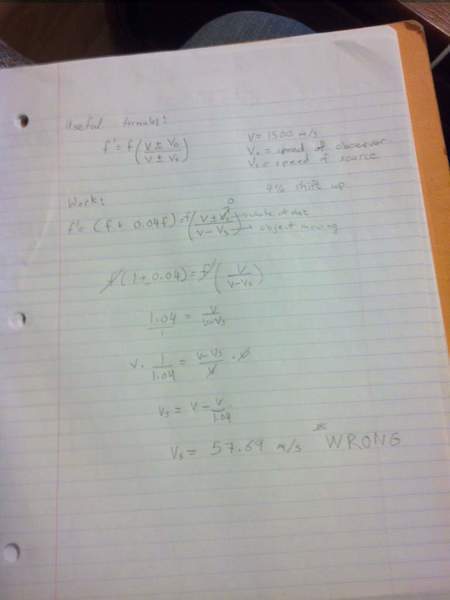 Useful formulas:
f' = f (V ± Vo / V ± Vs)
V = 1500 m/s
Vo = speed of observer
Vs = speed of source
4% shift up
Work:
f' = (f + 0.04f) = f (V ± Vo / V - Vs) 0
object moving
f(1 + 0.04) = f (V / V - Vs)
1.04 / 1 = V / V - Vs
V · 1 / 1.04 = V - Vs / V · V
Vs = V - V / 1.04
Vs = 57.69 m/s WRONG